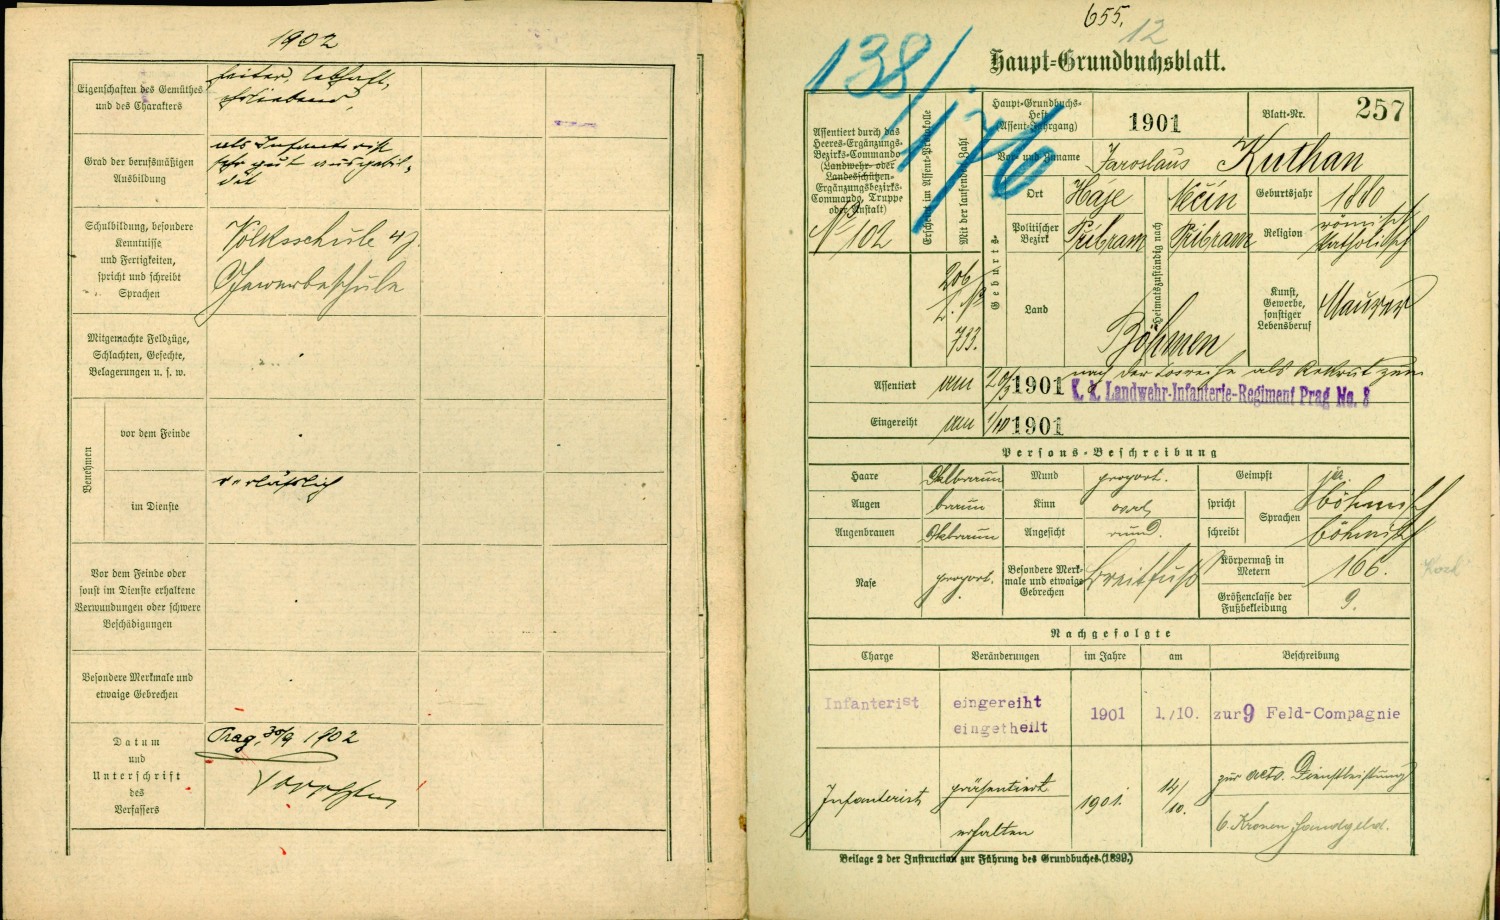 1902
Eigenschaften des Gemüthes
und des Charakters
heiter, lebhaft,
Grad der berufsmäßigen
Ausbildung
als Infanterist
sehr gut ausgebil-
det
Schulbildung, besondere
Kenntnisse
und Fertigkeiten,
spricht und schreibt
Sprachen
Volksschule 4j.
Gewerbeschule
Mitgemachte Feldzüge,
Schlachten, Gefechte,
Belagerungen u. s. w.
Benehmen
vor dem Feinde
im Dienste
verläßlich
Vor dem Feinde oder
sonst im Dienste erhaltene
Verwundungen oder schwere
Beschädigungen
Besondere Merkmale und
etwaige Gebrechen
Datum
und
Unterschrift
des
Verfassers
Prag, 30/9 1902
655.
12
138/
176
Haupt-Grundbuchsblatt.
Assentiert durch das
Heeres-Ergänzungs-
Bezirks-Commando
(Landwehr- oder
Landesschützen-
Ergänzungsbezirks-
Commando, Truppe
oder Anstalt)
No 102
Erscheint im Assent-Protokolle
Mit der laufenden Zahl
206
733.
Haupt-Grundbuchs-
Heft
(Assent-Jahrgang)
1901
Blatt-Nr.
257
Vor- und Zuname
Jaroslaus Kuthan
Geburts-
Ort
Haje
Heimatszuständig nach
Nečin
Geburtsjahr
1880
Politischer
Bezirk
Přibram
Přibram
Religion
römisch
katholisch
Land
Böhmen
Kunst,
Gewerbe,
sonstiger
Lebensberuf
Maurer
Assentiert
am
20/3 1901
nach der Losreihe als Rekrut zum
K. k. Landwehr-Infanterie-Regiment Prag No. 8
Eingereiht
am
1/10 1901
Persons-Beschreibung
Haare
Dklbraun
Mund
proport.
Geimpft
ja
Augen
braun
Kinn
oval
spricht
Sprachen
böhmisch
Augenbrauen
Dkbraun
Angesicht
rund.
schreibt
böhmisch
Nase
proport.
Besondere Merk-
male und etwaige
Gebrechen
Breitfuß
Körpermaß in
Metern
166.
Größenclasse der
Fußbekleidung
9.
Nachgefolgte
Charge
Veränderungen
im Jahre
am
Beschreibung
Infanterist
eingereiht
eingetheilt
1901
1./10.
zur 9 Feld-Compagnie
Infanterist
präsentiert
1901.
14/10.
zur actv. Dienstleistung
erhalten
6 Kronen Handgeld.
Beilage 2 der Instruction zur Führung des Grundbuches (1899.)